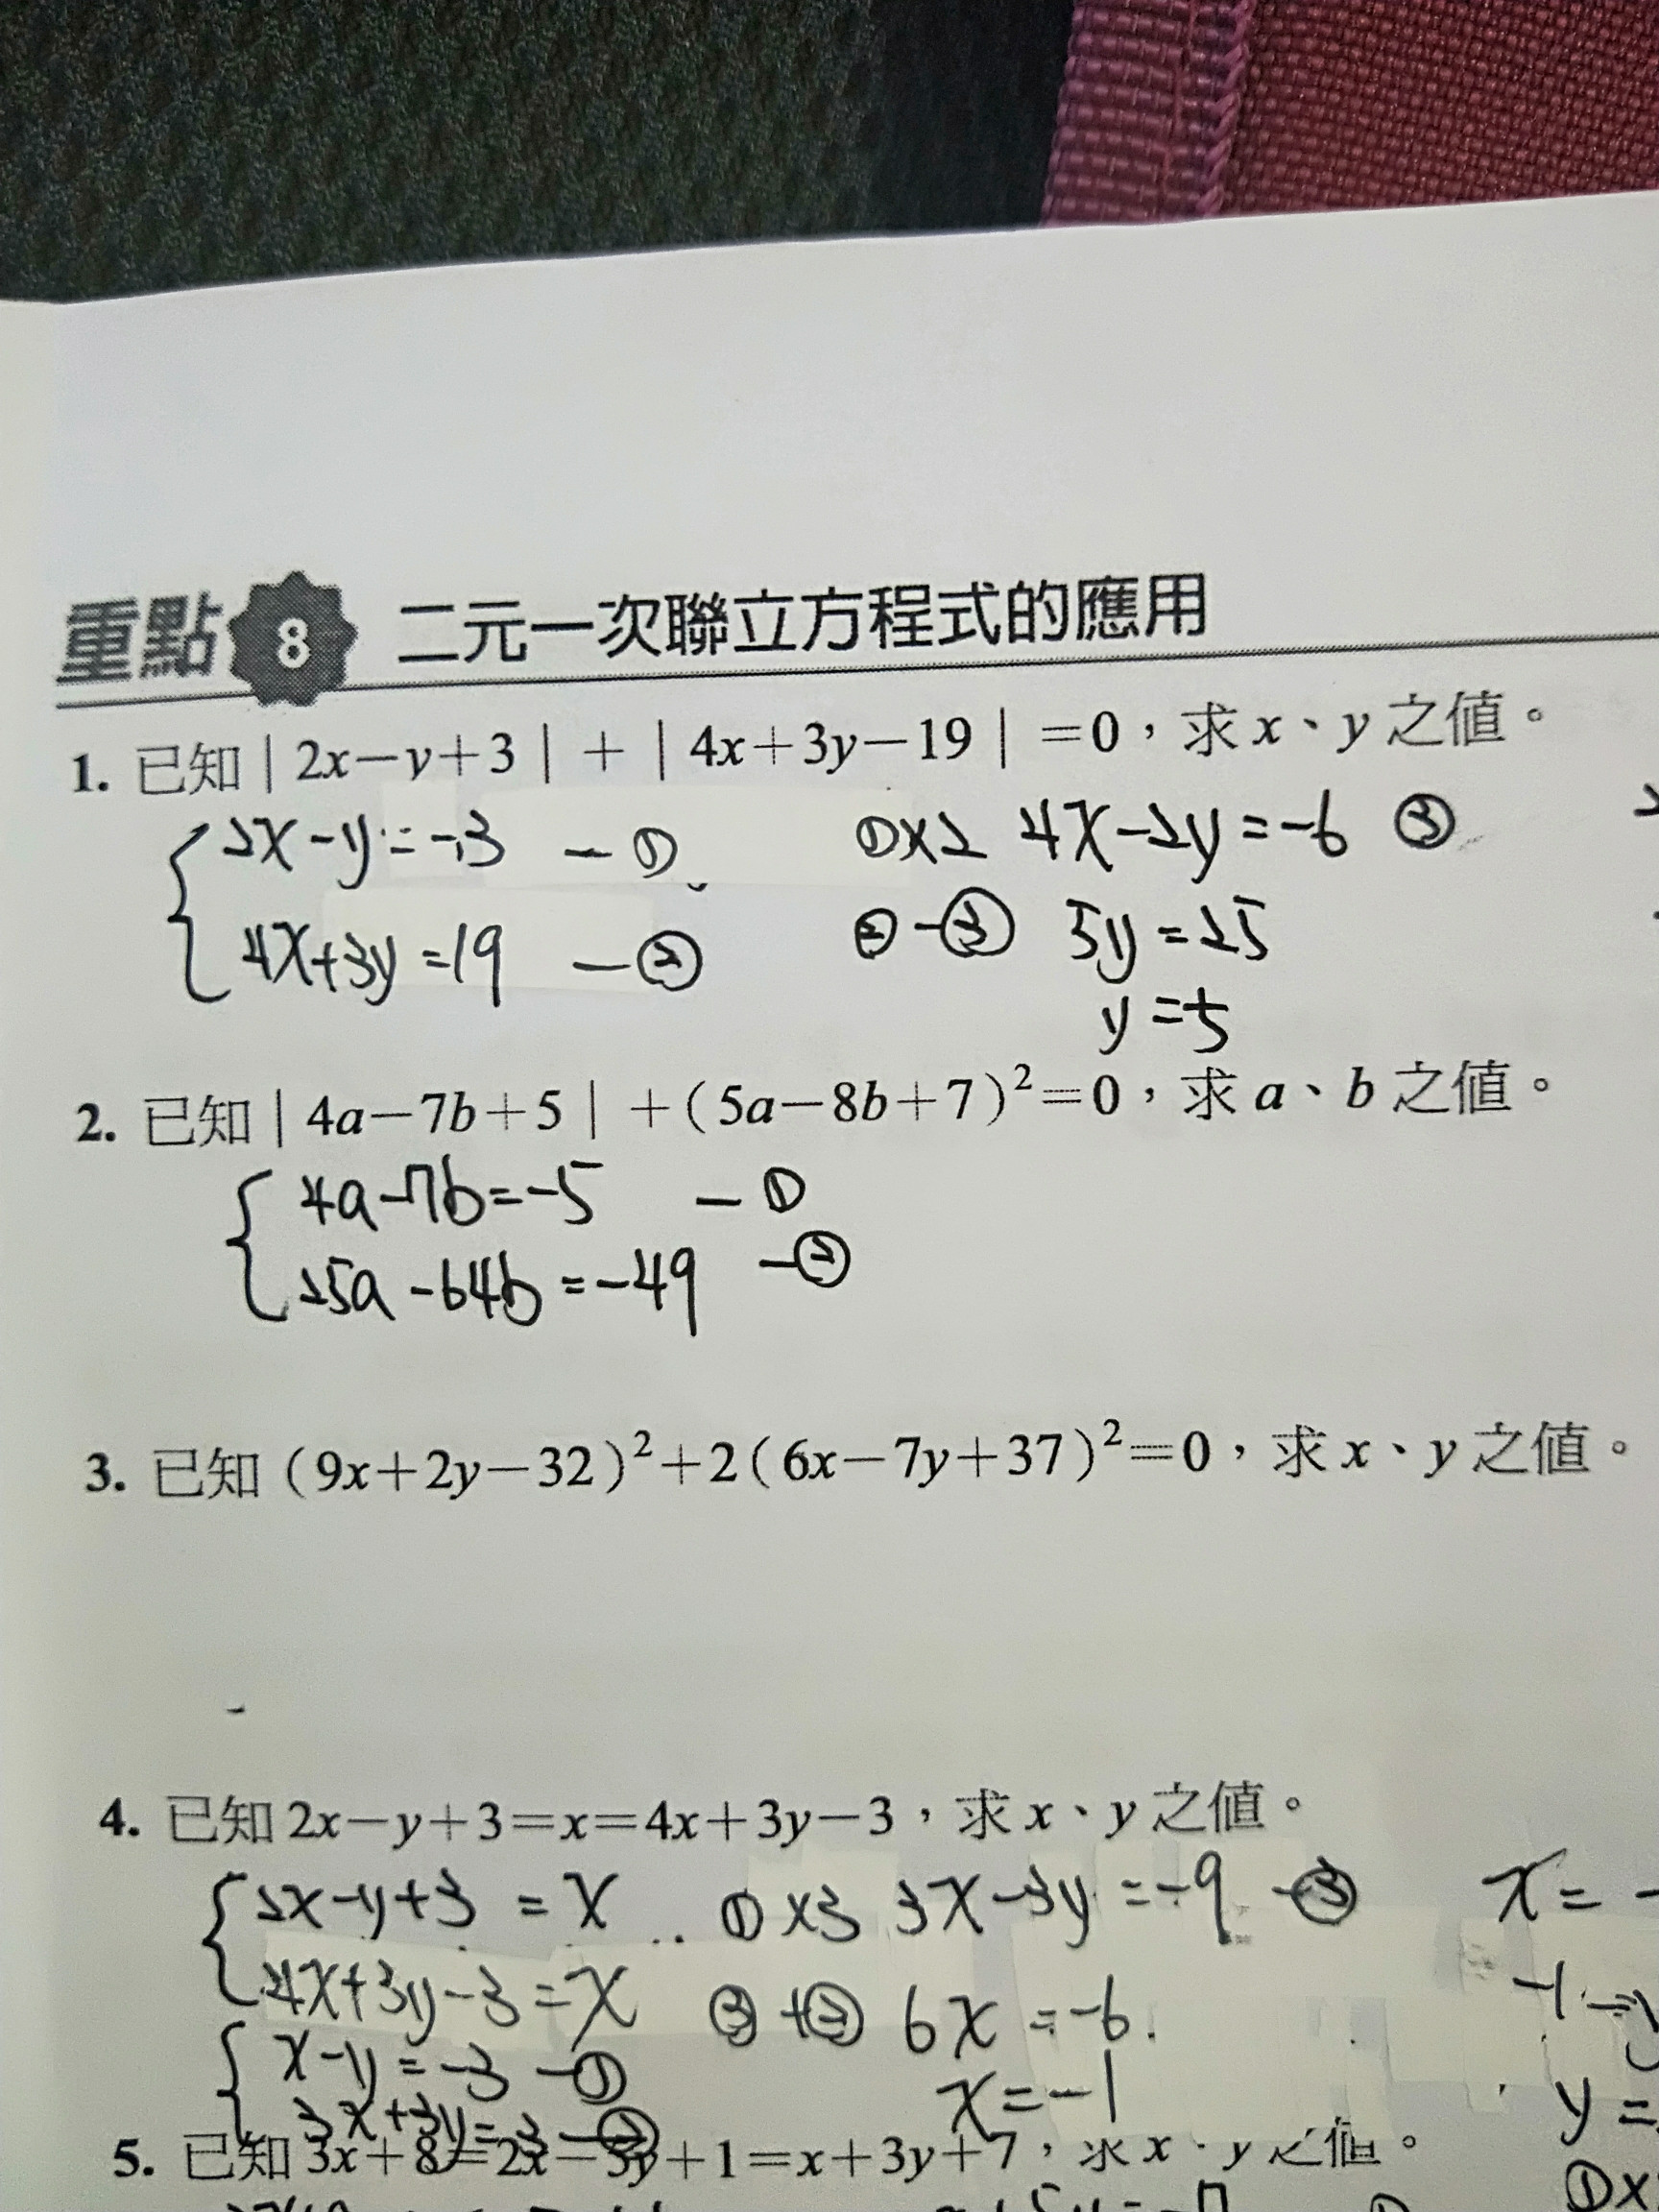 重點 8 二元一次聯立方程式的應用
1. 已知 | 2x−y+3 | + | 4x+3y−19 | =0，求 x、y 之值。
2x-y=-3 -① ①×2 4x-2y=-6 ③
4x+3y=19 -② ②-③ 5y=25
y=5
2. 已知 | 4a−7b+5 | +(5a−8b+7)²=0，求 a、b 之值。
4a-7b=-5 -①
25a-64b=-49 -②
3. 已知 (9x+2y−32)²+2(6x−7y+37)²=0，求 x、y 之值。
4. 已知 2x−y+3=x=4x+3y−3，求 x、y 之值。
2x-y+3=x ①×3 3x-3y=-9 -③ x=-
4x+3y-3=x ③+② 6x=-6
x-y=-3 -① x=-1 y=
3x+3y=3 -②
5. 已知 3x+8=2x−3y+1=x+3y+7，求 x、y 之值。
①x